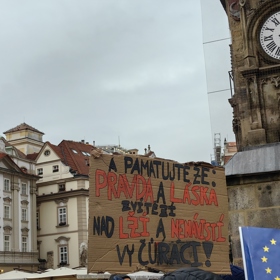 A PAMATUJTE ŽE:
PRAVDA A LÁSKA
ZVÍTĚZÍ
NAD LŽÍ A NENÁVISTÍ
VY ČŮRÁCI!